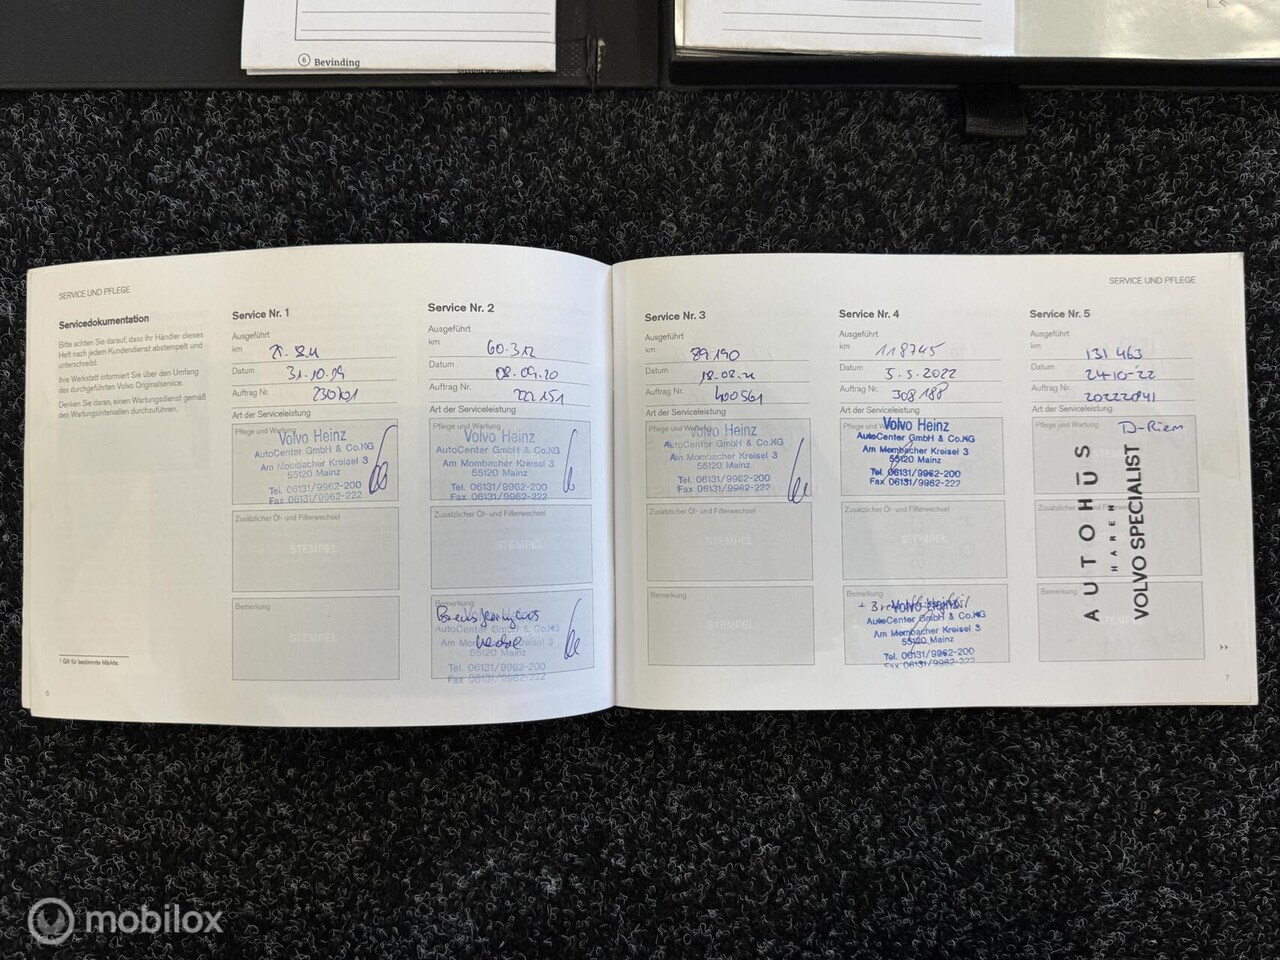 6 Bevinding
SERVICE UND PFLEGE
Servicedokumentation
Bitte achten Sie darauf, dass Ihr Händler dieses
Heft nach jedem Kundendienst abstempelt und
unterschreibt.
Ihre Werkstatt informiert Sie über den Umfang
des durchgeführten Volvo Originalservice.
Denken Sie daran, einen Wartungsdienst gemäß
den Wartungsintervallen durchzuführen.
1 Gilt für bestimmte Märkte.
6
Service Nr. 1
Ausgeführt
km
Datum 31.10.19
Auftrag Nr.
Art der Serviceleistung
Pflege und Wartung
Volvo Heinz
AutoCenter GmbH & Co.KG
Am Mombacher Kreisel 3
55120 Mainz
Tel. 06131/9962-200
Fax 06131/9962-222
Zusätzlicher Öl- und Filterwechsel
STEMPEL
Bemerkung
STEMPEL
Service Nr. 2
Ausgeführt
km 60.312
Datum 08.09.20
Auftrag Nr. 222151
Art der Serviceleistung
Pflege und Wartung
Volvo Heinz
AutoCenter GmbH & Co.KG
Am Mombacher Kreisel 3
55120 Mainz
Tel. 06131/9962-200
Fax 06131/9962-222
Zusätzlicher Öl- und Filterwechsel
STEMPEL
Bemerkung
Volvo Heinz
AutoCenter GmbH & Co.KG
Am Mombacher Kreisel 3
55120 Mainz
Tel. 06131/9962-200
Fax 06131/9962-222
SERVICE UND PFLEGE
Service Nr. 3
Ausgeführt
km 89190
Datum
Auftrag Nr. 400561
Art der Serviceleistung
Pflege und Wartung
Volvo Heinz
AutoCenter GmbH & Co.KG
Am Mombacher Kreisel 3
55120 Mainz
Tel. 06131/9962-200
Fax 06131/9962-222
Zusätzlicher Öl- und Filterwechsel
STEMPEL
Bemerkung
STEMPEL
Service Nr. 4
Ausgeführt
km 118745
Datum 5.5.2022
Auftrag Nr. 308188
Art der Serviceleistung
Pflege und Wartung
Volvo Heinz
AutoCenter GmbH & Co.KG
Am Mombacher Kreisel 3
55120 Mainz
Tel. 06131/9962-200
Fax 06131/9962-222
Zusätzlicher Öl- und Filterwechsel
STEMPEL
Bemerkung
Volvo Heinz
AutoCenter GmbH & Co.KG
Am Mombacher Kreisel 3
55120 Mainz
Tel. 06131/9962-200
Fax 06131/9962-222
Service Nr. 5
Ausgeführt
km 131 463
Datum 24-10-'22
Auftrag Nr. 20222841
Art der Serviceleistung
Pflege und Wartung
D-Riem
AUTOHŪS
HAREN
VOLVO SPECIALIST
Zusätzlicher Öl- und Filterwechsel
Bemerkung
7
mobilox